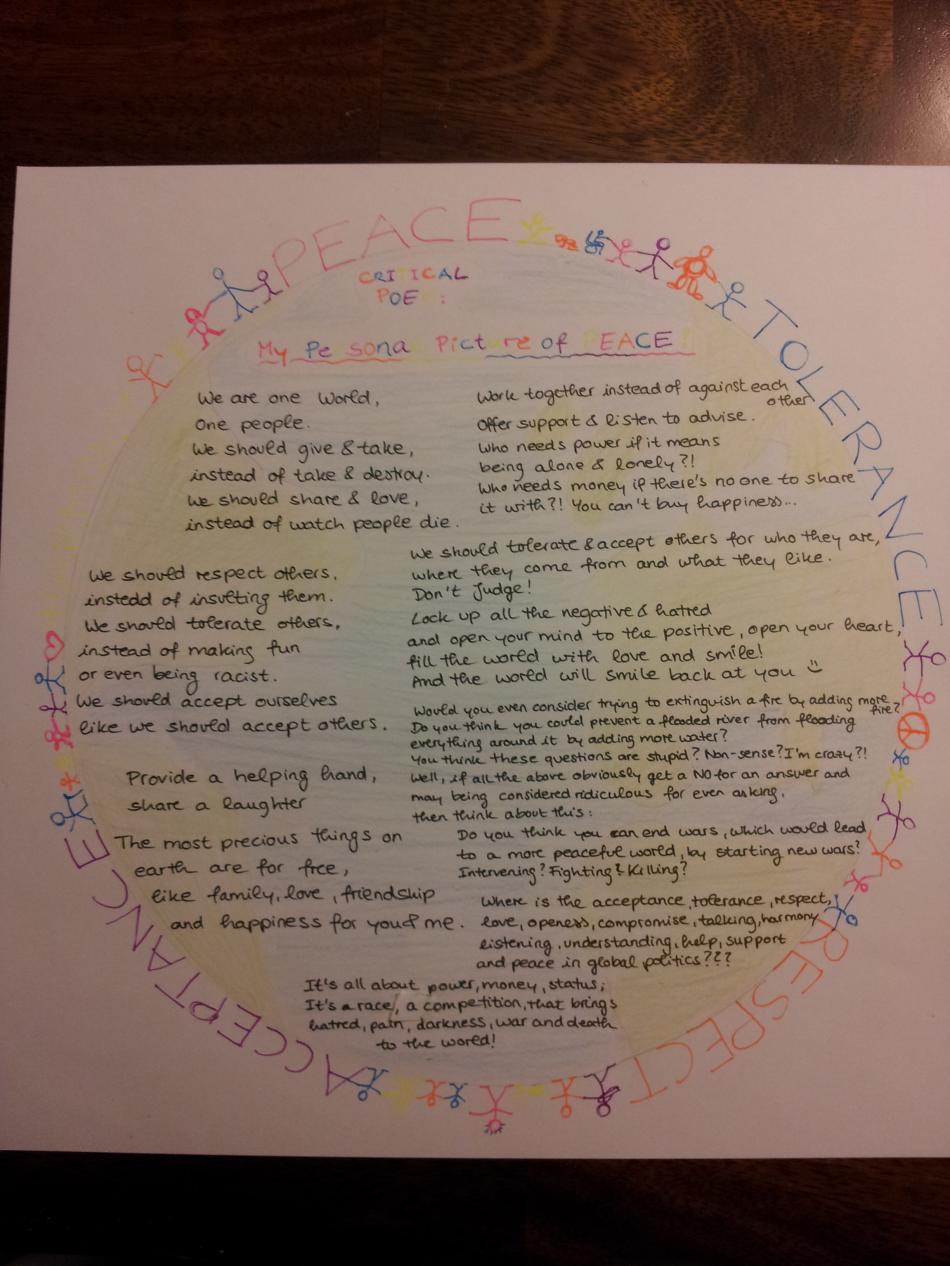 PEACE
TOLERANCE
RESPECT
ACCEPTANCE
CRITICAL
POE :
My Pe sona Pict re of EACE !
We are one World,
One people.
We should give & take,
instead of take & destroy.
We should share & love,
instead of watch people die.
We should respect others,
instedd of insulting them.
We should tolerate others,
instead of making fun
or even being racist.
We should accept ourselves
like we should accept others.
Provide a helping hand,
share a laughter
The most precious things on
earth are for free,
like family, love, friendship
and happiness for you & me.
Work together instead of against each
other
Offer support & listen to advise.
Who needs power if it means
being alone & lonely?!
Who needs money if there's no one to share
it with?! You can't buy happiness...
We should tolerate & accept others for who they are,
where they come from and what they like.
Don't Judge!
Lock up all the negative & hatred
and open your mind to the positive, open your heart,
fill the world with love and smile!
And the world will smile back at you
Would you even consider trying to extinguish a fire by adding more
fire?
Do you think you could prevent a flooded river from flooding
everything around it by adding more water?
You think these questions are stupid? Non-sense? I'm crazy?!
Well, if all the above obviously get a NO for an answer and
may being considered ridiculous for even asking,
then think about this:
Do you think you can end wars, which would lead
to a more peaceful world, by starting new wars?
Intervening? Fighting? Killing?
Where is the acceptance, tolerance, respect,
love, openess, compromise, talking, harmony
listening, understanding, help, support
and peace in global politics???
It's all about power, money, status;
It's a race, a competition, that brings
hatred, pain, darkness, war and death
to the world!